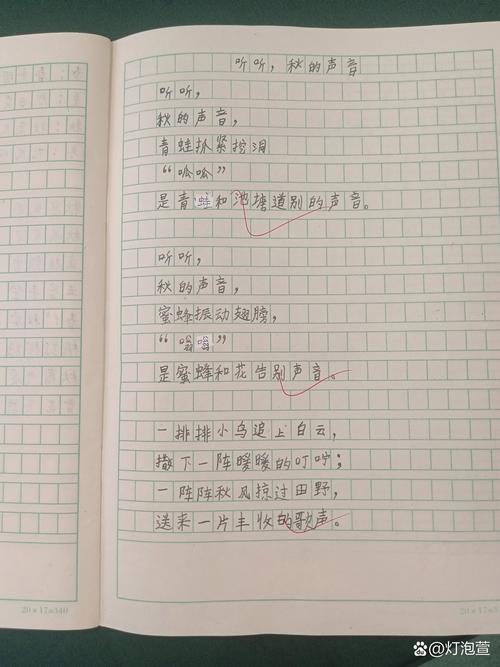 听听，秋的声音
听听，
秋的声音，
青蛙抓紧挖洞
“呱呱”
是青蛙和池塘道别的声音。
听听，
秋的声音，
蜜蜂振动翅膀，
“嗡嗡”
是蜜蜂和花告别声音。
一排排小鸟追上白云，
撒下一阵暖暖的叮咛；
一阵阵秋风掠过田野，
送来一片丰收的歌声。
20×17=340
20×17=3
@灯泡萱